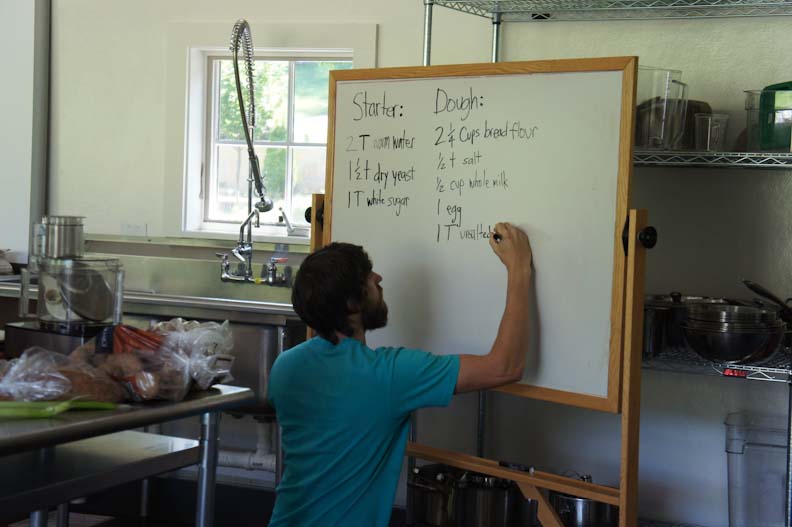 Starter:
2 T warm water
1 ½ t dry yeast
1 T white sugar
Dough:
2 ¼ Cups bread flour
½ t salt
½ cup whole milk
1 egg
1 T unsalted